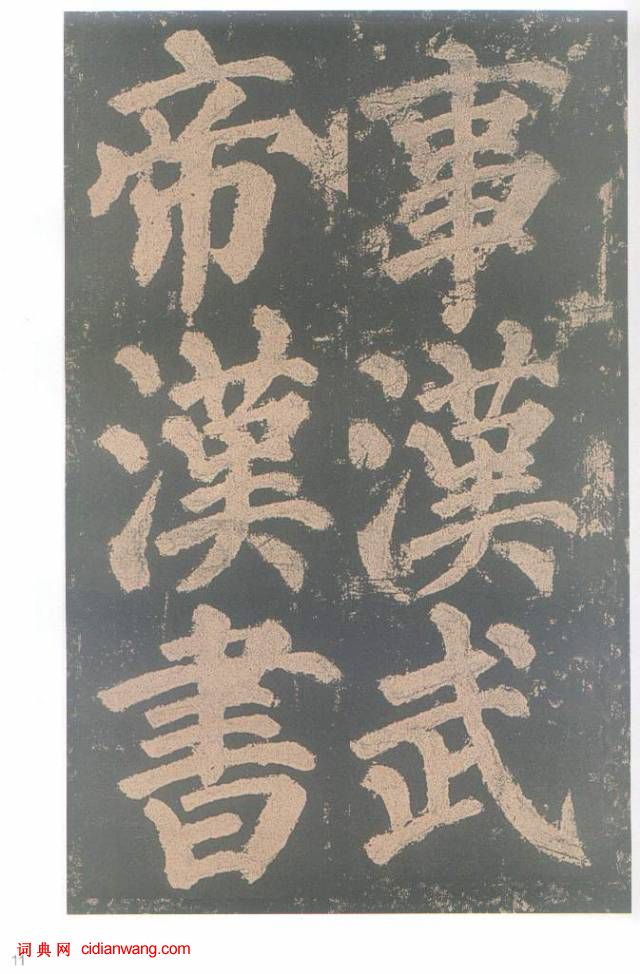 事漢武
帝漢書
词典网 cidianwang.com
11